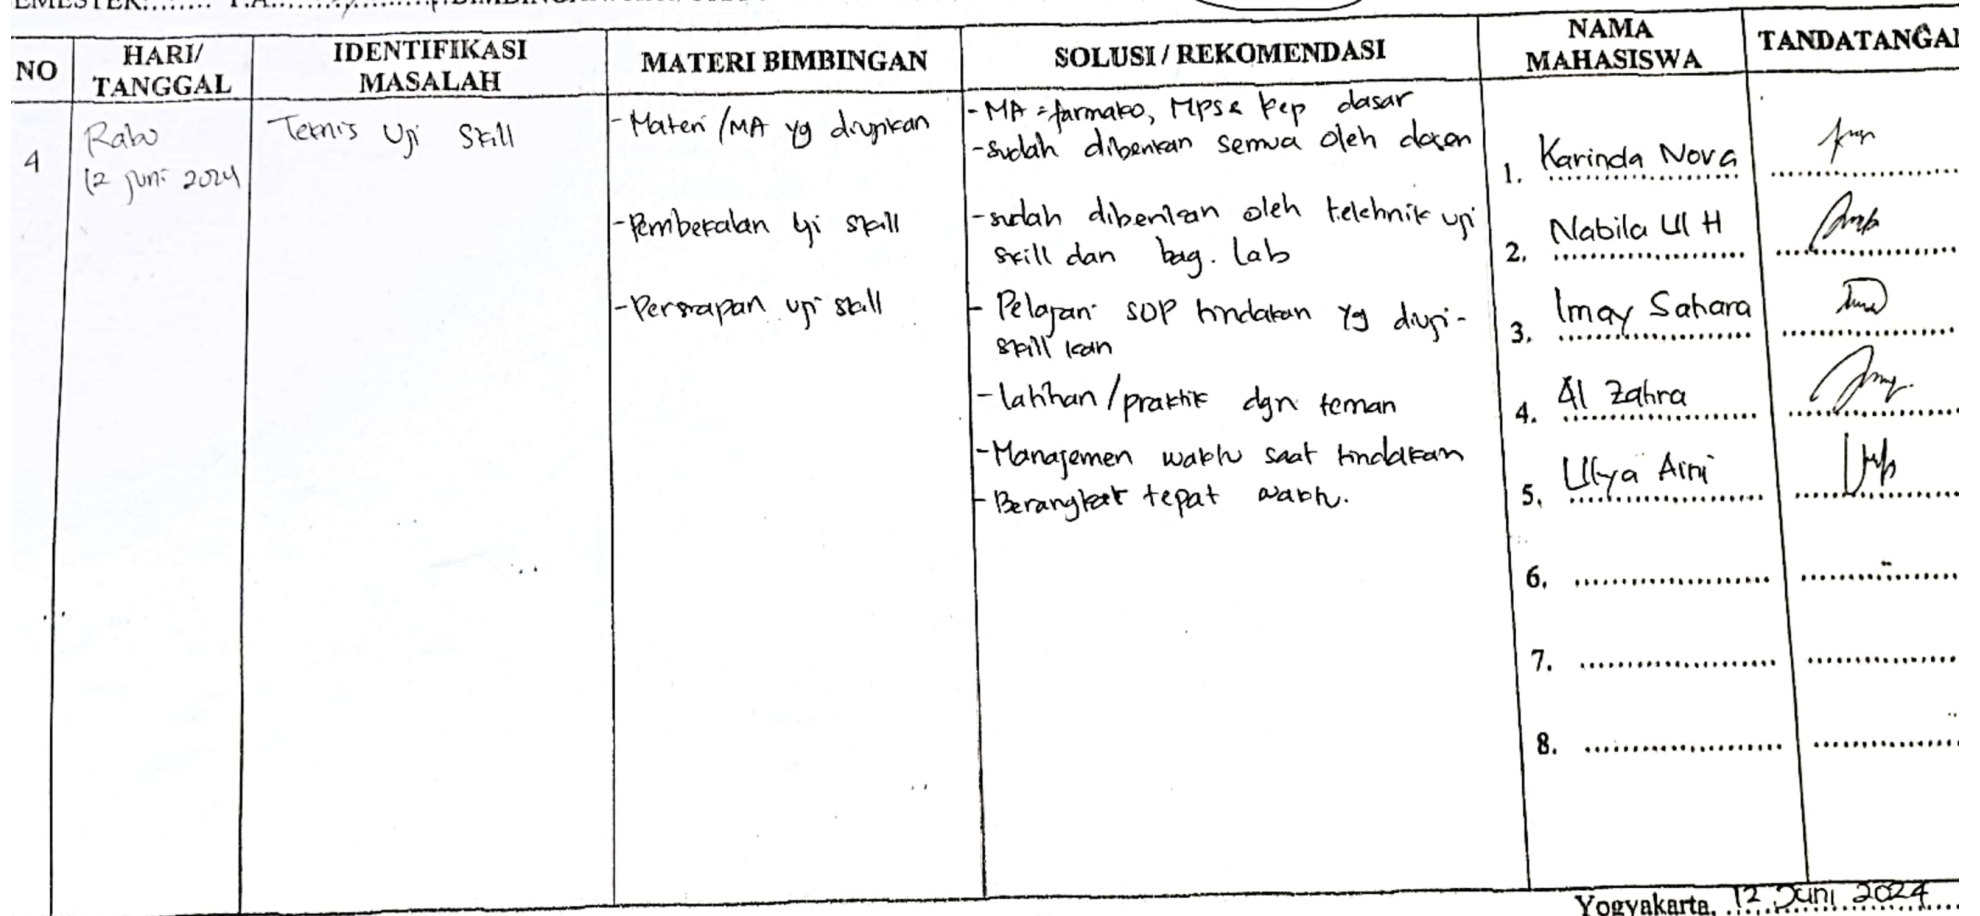 EMESTER:........ T.A.
NO
HARI/
TANGGAL
IDENTIFIKASI
MASALAH
MATERI BIMBINGAN
SOLUSI / REKOMENDASI
NAMA
MAHASISWA
TANDATANGAN
4
Rabu
12 Juni 2024
Teknis Uji Skill
- Materi /MA yg diujikan
- Pembekalan uji skill
- Persiapan uji skill
- MA = farmako, MPS & kep dasar
- sudah diberikan semua oleh dosen
- sudah diberikan oleh telehnik uji
skill dan bag. lab
- Pelajari SOP tindakan yg diuji-
skill kan
- latihan/praktik dgn teman
- Manajemen waktu saat tindakan
- Berangkat tepat waktu.
1. Karinda Nova
2. Nabila Ul H
3. Imay Sahara
4. Al Zahra
5. Ulya Aini
6. ........................
7. ........................
8. ........................
Yogyakarta, 12 Juni 2024